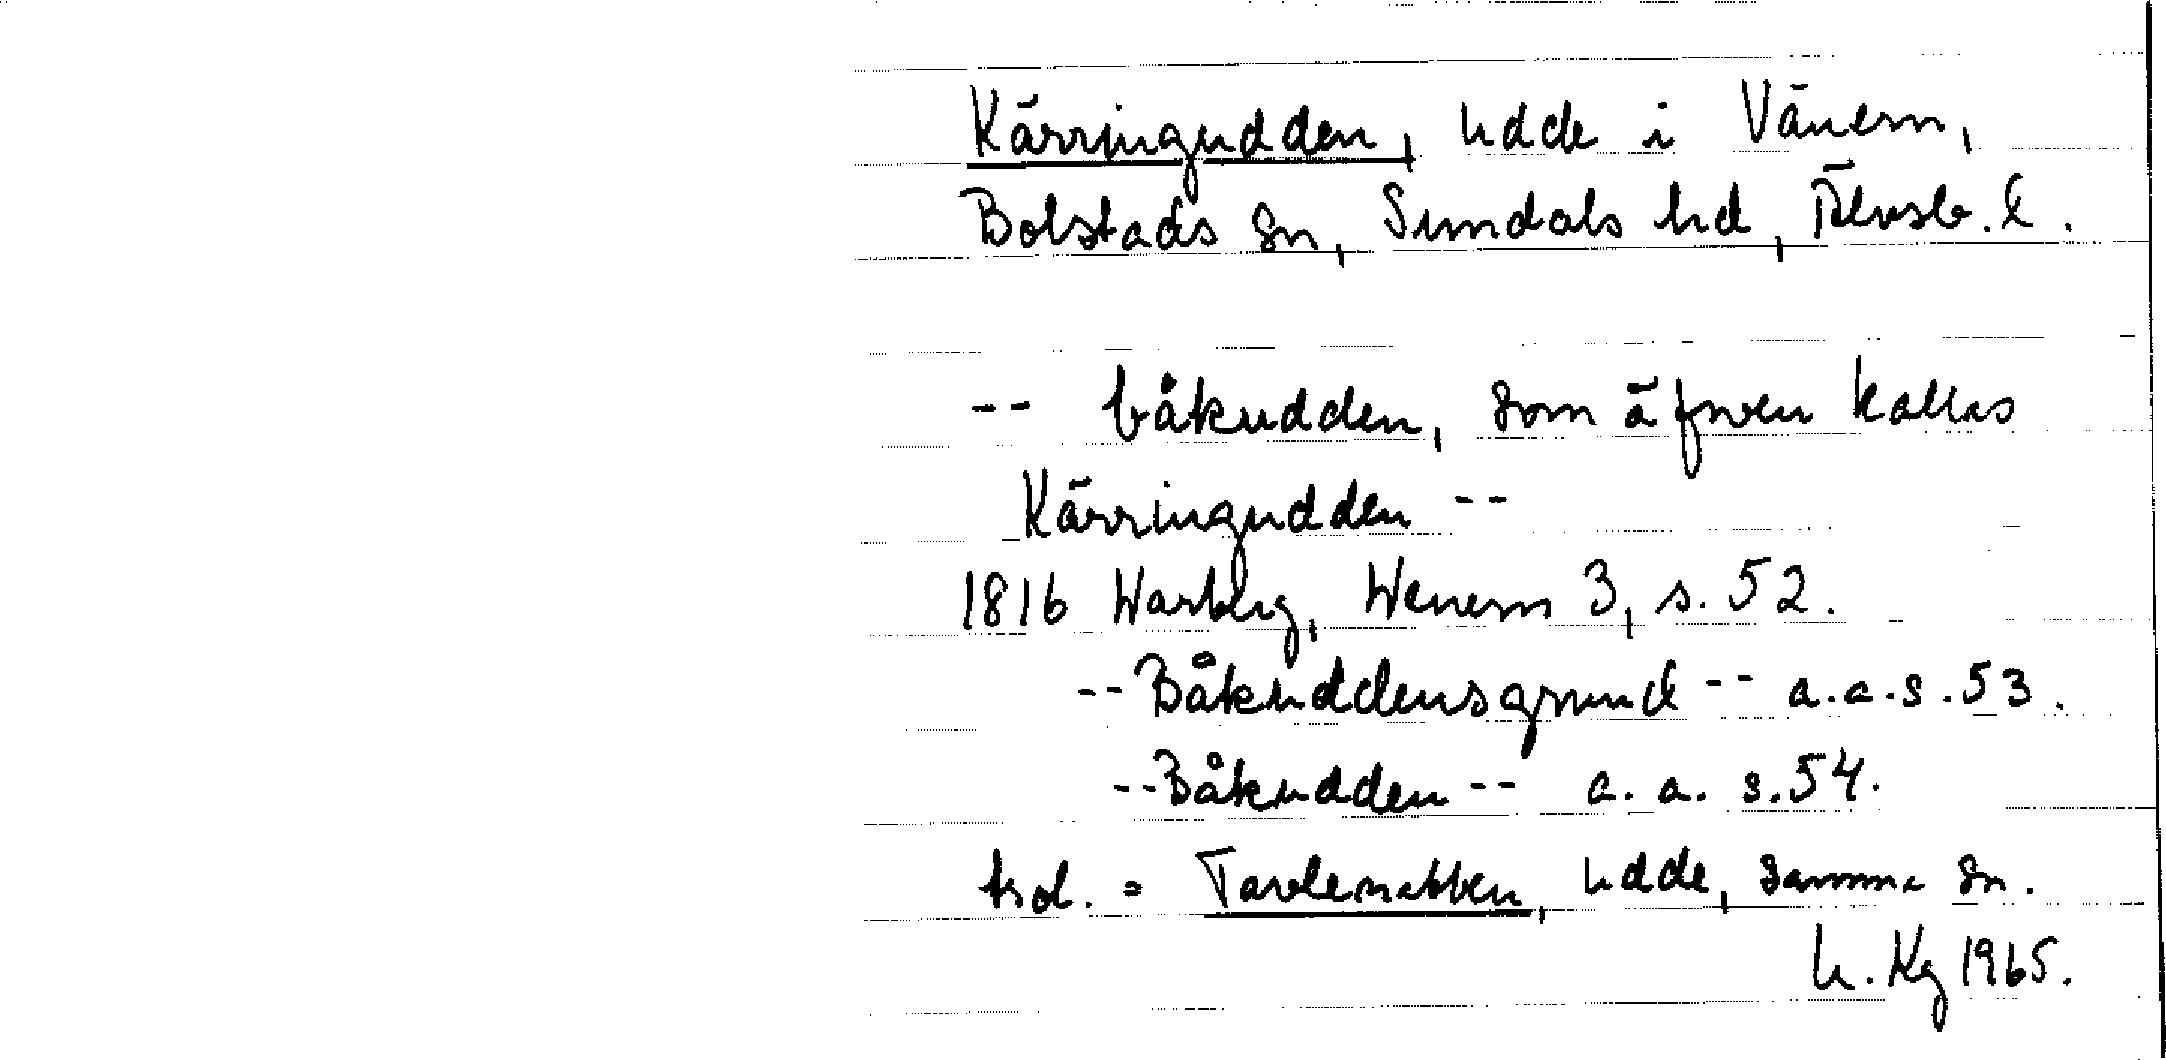 Kärringudden, udde i Vänern,
Bolstads sn, Sundals hd, Älvsb. l.
-- båkudden, som äfven kallas
Kärringudden --
1816 Warbg, Wenern 3, s. 52.
-- Båkuddensgrund -- a.a.s. 53.
-- Båkudden -- a. a. s. 54.
trol. = udde, samma sn.
Kg 1965.